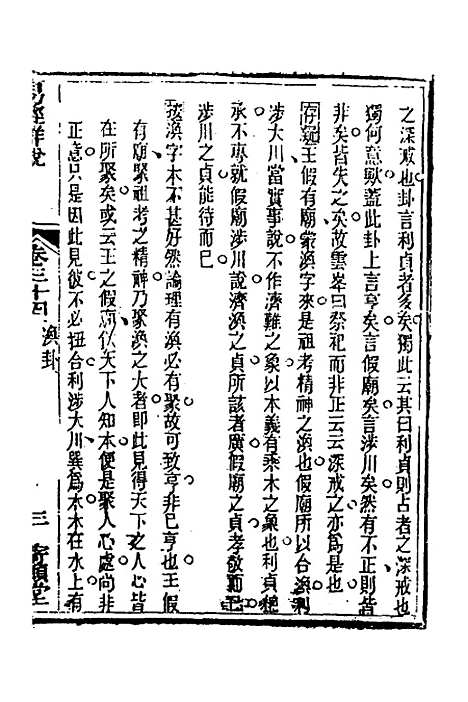 之深戒也卦言利貞者多矣獨此云其曰利貞則占者之深戒也
獨何意歟蓋此卦上言亨矣言假廟矣言涉川矣然有不正則皆
非矣皆失之矣故雲峯曰祭祀而非正云云深戒之亦爲是也
存疑王假有廟蒙渙字來是祖考精神之渙也假廟所以合渙利
涉大川當實事說不作濟難之象以本義有乘木之象也利貞總
承不專就假廟涉川說濟渙之貞所該者廣假廟之貞孝敬而已
涉川之貞能待而已
渙字本不甚好然論理有渙必有聚故可致亨非巳亨也王假
有廟聚祖考之精神乃聚渙之大者卽此見得天下之人心皆
在所聚矣或云王之假廟仗天下人知本便是聚人心處尚非
正意只是因此見彼不必扭合利涉大川巽爲木木在水上有
易經詳說
卷三十四
渙卦
三
寄願堂